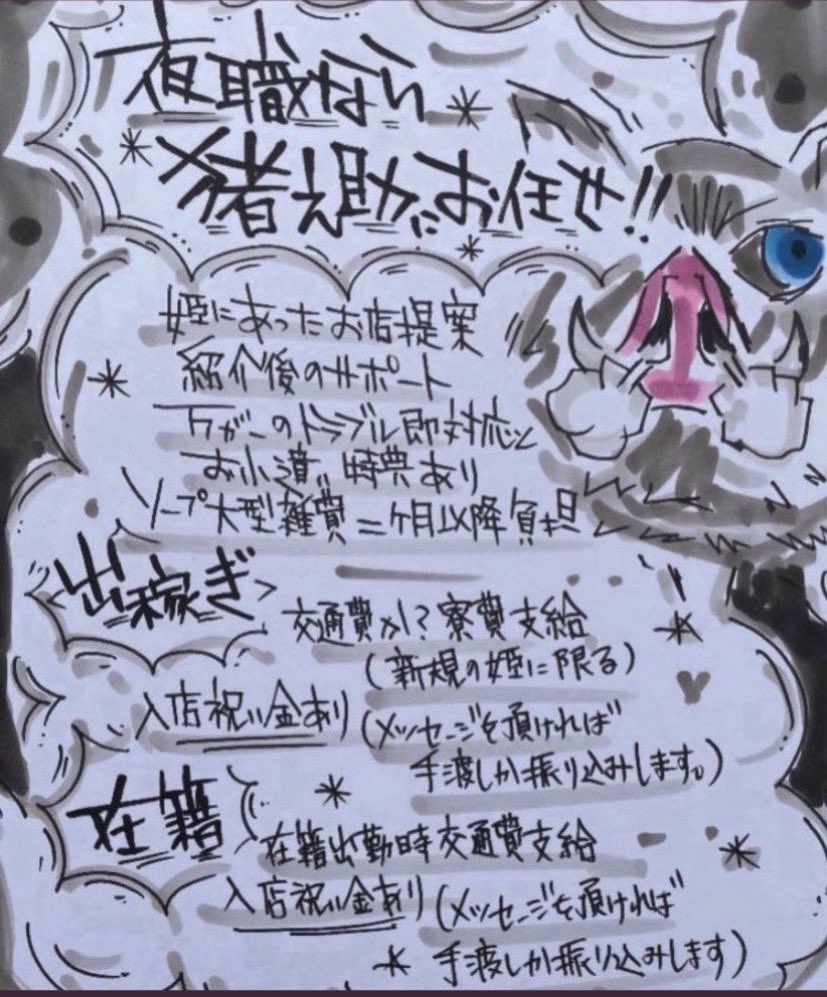 夜職なら
猪之助にお任せ!!
姫にあったお店提案
紹介後のサポート
万が一のトラブル即対応と
お小遣い特典あり
ソープ大型雑費二ヶ月以降負担
出稼ぎ
交通費か?寮費支給
(新規の姫に限る)
入店祝い金あり(メッセージを頂ければ
手渡しか振り込みします。)
在籍
在籍出勤時交通費支給
入店祝い金あり(メッセージを頂ければ
手渡しか振り込みします)